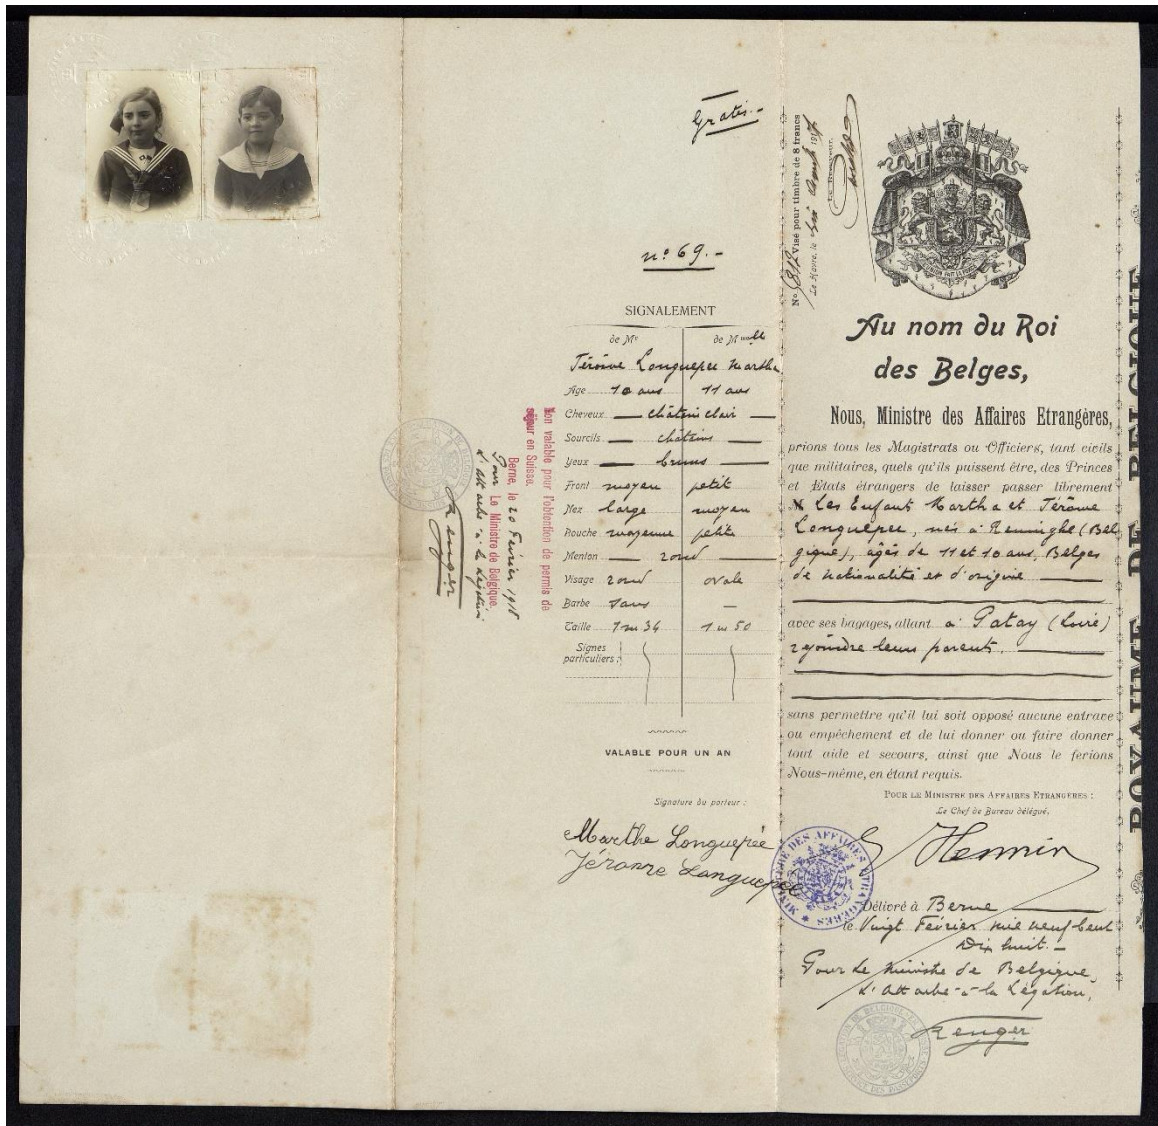 Gratis.-
nº 69.-
SIGNALEMENT
de Mr de Melle
Jérôme Longuepee Martha
Age 10 ans 11 ans
Cheveux — châtain clair —
Sourcils — châtains —
Yeux — bruns —
Front moyen petit
Nez large moyen
Bouche moyenne petite
Menton — rond —
Visage rond ovale
Barbe sans —
Taille 1 m 34 1 m 50
Signes
particuliers :
VALABLE POUR UN AN
Signature du porteur :
Marthe Longuepée
Jérome Longuepée
Non valable pour l'obtention de permis de
séjour en Suisse.
Berne, le 20 Février 1918
Pour Le Ministre de Belgique,
L'attaché à la Légation
Renger
Nº 812 Visé pour timbre de 8 francs
Le Havre, le
Le Receveur,
L'UNION FAIT LA FORCE
Au nom du Roi
des Belges,
Nous, Ministre des Affaires Etrangères,
prions tous les Magistrats ou Officiers, tant civils
que militaires, quels qu'ils puissent être, des Princes
et États étrangers de laisser passer librement
M Les Enfant Martha et Jérôme
Longuepee, nés à Reninghe (Bel
gique), âgés de 11 et 10 ans, Belges
de nationalité et d'origine —
avec ses bagages, allant à Patay (Loire)
rejoindre leurs parents. —
sans permettre qu'il lui soit opposé aucune entrave
ou empêchement et de lui donner ou faire donner
tout aide et secours, ainsi que Nous le ferions
Nous-même, en étant requis.
POUR LE MINISTRE DES AFFAIRES ETRANGÈRES :
Le Chef de Bureau délégué,
MINISTÈRE DES AFFAIRES ETRANGÈRES
Délivré à Berne —
le Vingt Février mil neuf cent
Dix huit.-
Pour Le Ministre de Belgique,
L'Attaché à la Légation,
Renger
ROYAUME DE BELGIQUE